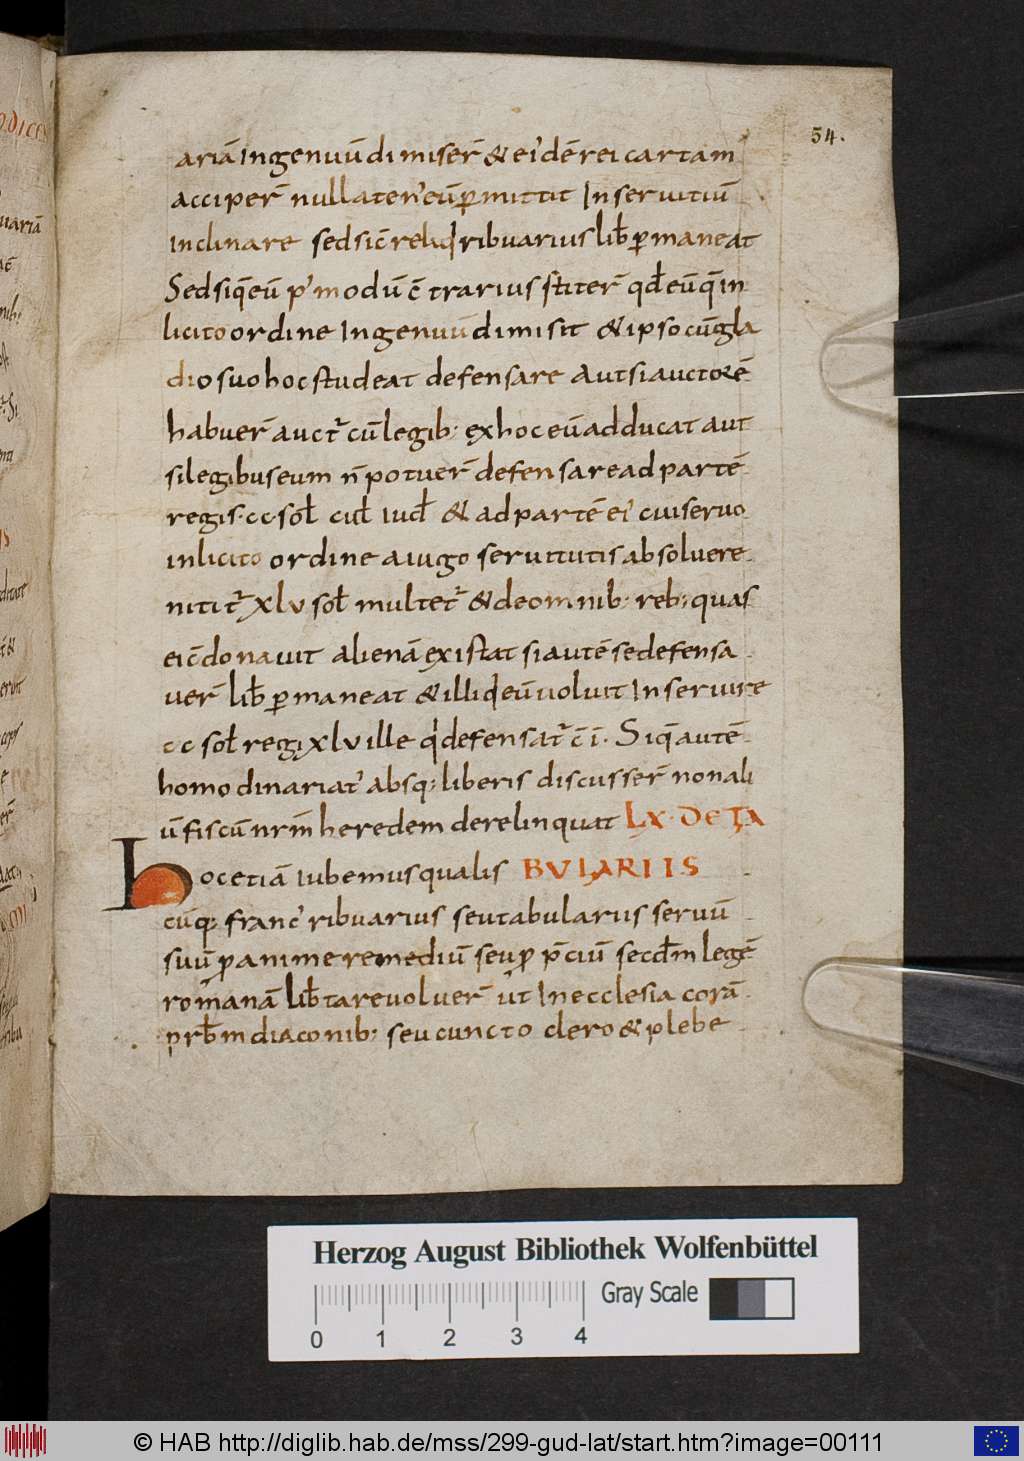 54.
ariā Ingenuū dimiser̄ & ei' dē rei cartam
acciper̄ nullaten' eū ꝑmittit In servitiū
Inclinare sed sic̄ reliq̄ ribuarius lib̄ ꝑmaneat
Sed siq̄ eū p' modū c̄trarius stiter̄ qđ eū q̄ In
licito ordine Ingenuū dimisit & ipso cū gla
dio suo hoc studeat defensare Aut si auctorē
habuer̄ auct̄ cū legib; ex hoc eū adducat aut
si legibus eum n̄ potuer̄ defensare ad partē
regis·cc·sol̄ cul̄ iud̄ & ad partē ei' cui servo
inlicito ordine a iugo servitutis absolvere
nitit̄ xlv sol̄ multet̄ & de omnib; reb; quas
ei c̄donavit alienā existat si autē se defensa
ver̄ lib̄ ꝑmaneat & illi q̄ eū voluit In servire
cc sol̄ regi xlv ille q' defensat̄ c̄ī· Siq̄ autē
homo dinariat' absq; liberis discusser̄ non ali
ū fiscū nr̄m heredem derelinquat LX·DE TA
hoc etiā iubemus qualis BULARIIS
cūq; franc' ribuarius seu tabularius servū
suū ꝓ anime remediū seu ꝓ p̄ciū secd̄m legē
romanā lib̄tare voluer̄ ut In ecclesia corā
prb̄m diaconib; seu cuncto clero & plebe
Herzog August Bibliothek Wolfenbüttel
Gray Scale
0 1 2 3 4
© HAB http://diglib.hab.de/mss/299-gud-lat/start.htm?image=00111